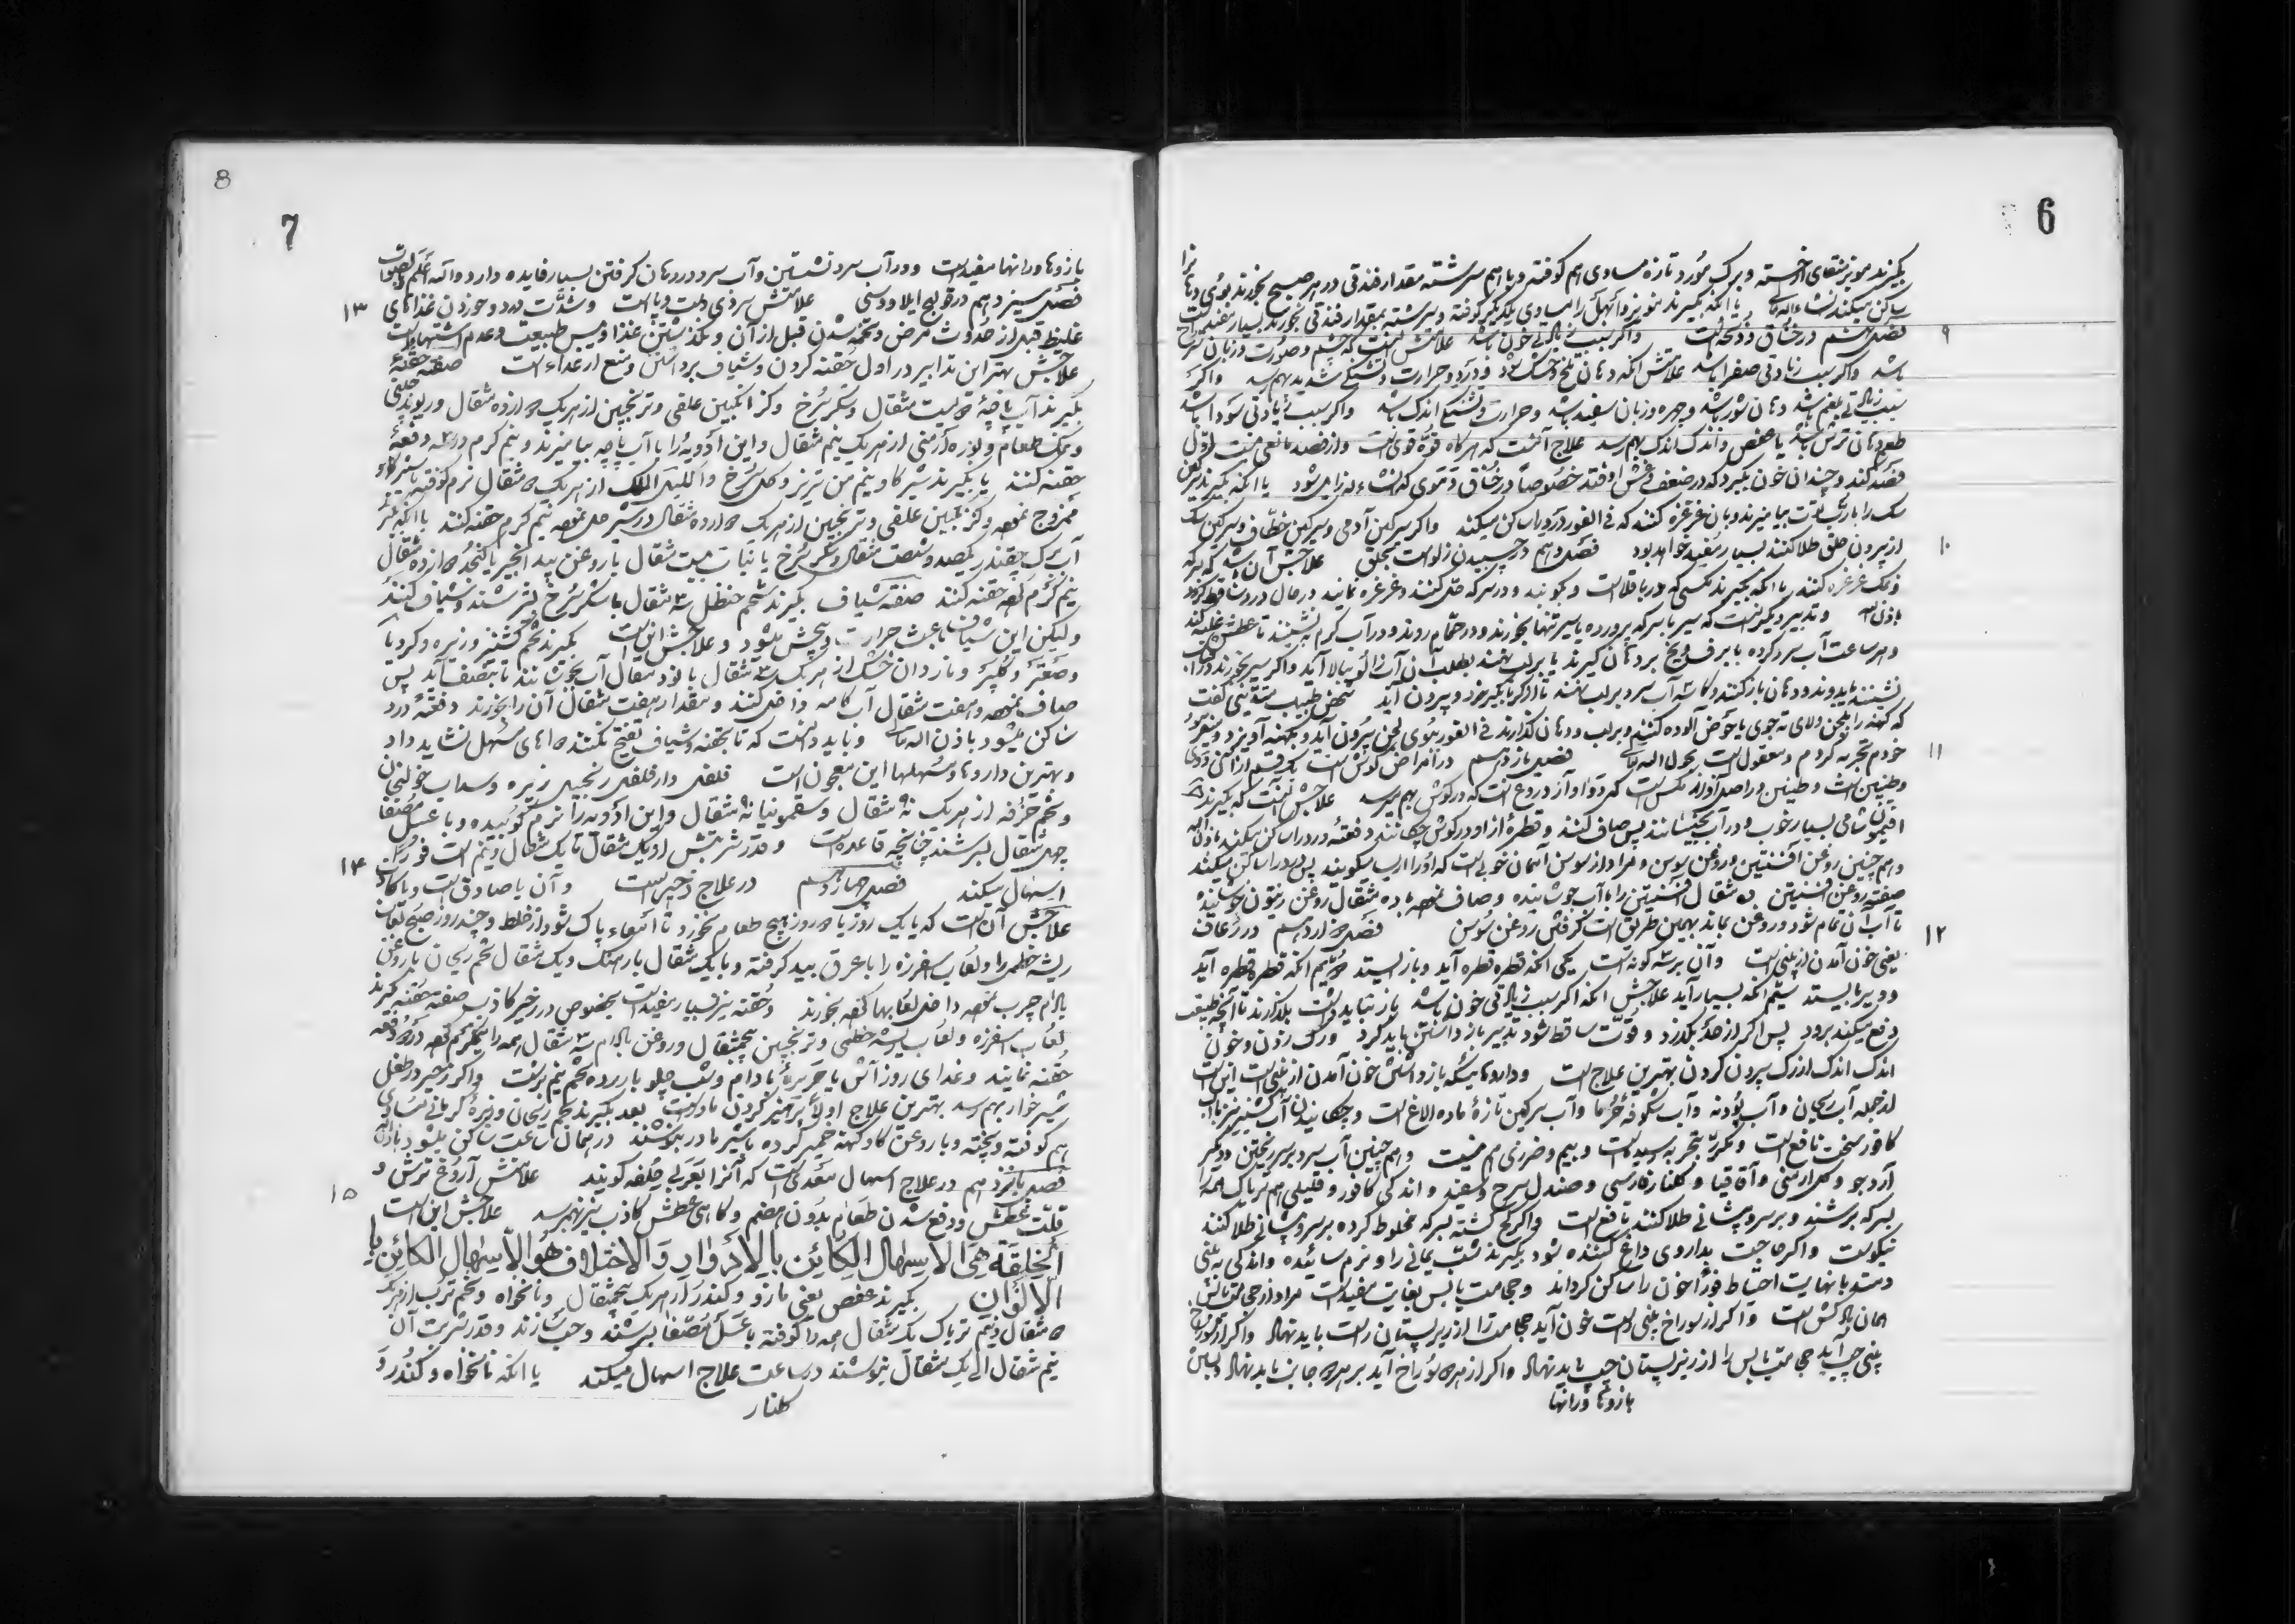 6
بگیرند مویز منقای از خسته و برگ مورد تازه مساوی هم کوفته و با هم سرشته مقدار فندقی در هر صبح بخورند بوی دهان را
ساکن میکند انشاءالله تعالی یا انکه بگیرند مویز و ابهل را مساوی یکدیگر کوفته و سرشته بمقدار فندقی بخورند بسیار مفید است
۹
فصل نهم در خناق و ذبحه است و اگر بسبب زیادتی خون باشد علامتش انست که چشم و صورت و زبان سرخ
باشد و اگر بسبب زیادتی صفرا باشد علامتش انکه دهان تلخ و خشک بود و درد و حرارت و تشنگی شدید بهم رسد و اگر
بسبب زیادتی بلغم باشد دهان شور باشد و چهره و زبان سفید باشد و حرارت و تشنگی اندک باشد و اگر بسبب زیادتی سودا باشد
طعم دهان ترش باشد یا عفص و اندک اندک بهم رسد علاج آنست که هر گاه قوه قوی است و از فصد مانعی نیست اول
فصد کند و چندان خون بگیرد که در ضعف و غش افتد خصوصا در خناق دموی که انشاءالله زایل شود یا انکه بگیرند سرکین
سک را با رب توت بیامیزند و بان غرغره کنند که فی الفور درد را ساکن میکند و اگر سرکین آدمی و سرکین خطاف و سرکین سک
۱۰
از بیرون حلق طلا کنند بسیار مفید خواهد بود فصل دهم در چسبیدن زلو است بحلق علاجش آن باشد که سرکه
و نمک غرغره کنند یا انکه بگیرند مکسی که در باقلا است و بکوبند و در سرکه حل کنند و غرغره نمایند در حال درد ساقط گردد
باذن الله و تدبیر دیگر انست که سیر با سرکه پرورده یا سیر تنها بخورند و در حمام روند و در آب گرم بنشینند تا عطش غلبه کند
و هر ساعت آب سرد کرده با برف و یخ بر دهان گیرند یا بر لب نهند بطلب آن آب زالو ببالا آید و اگر سیر بخورند و در آفتاب
نشینند یا بدوند و دهان باز کنند و کاسه آب سرد بر لب نهند تا زالو کرنا بگیرد و بیرون آید شخص طبیب متدینی گفت
که کهنه را بلجن ولای ته جوی یا حوض آلوده کنند و بر لب و دهان گذارند فی الفور ببوی لجن بیرون آید و بکهنه آویزد و
۱۱
خودم تجربه کردم و معقول است بحول الله تعالی فصل یازدهم در امراض گوش است یک قسم از آن
وطنین است و طنین در اصل آواز مکس است که دو آواز دروغ است که در گوش بهم رسد علاجش آنست که بگیرند
افتیمون شامی بسیار خوب و در آب بجوشانند پس صاف کنند و قطره از او در گوش چکانند دفعةً درد را ساکن میکند باذن الله
و هم چنین روغن افسنتین و روغن سوسن و مراد از سوسن آسمان خونی است که او را ایرسا میگویند پس درد را ساکن میکند
صفت روغن افسنتین ده مثقال افسنتین را با آب جوشانیده و صاف نموده با ده مثقال روغن زیتون جوشانیده
۱۲
تا آب آن تمام شود و روغن بماند بهمین طریق است گرفتن روغن سوسن فصل دوازدهم در رعاف
یعنی خون آمدن از بینی است و آن بر سه گونه است یکی انکه قطره قطره آید و باز ایستد دویم انکه قطره قطره آید
و دیر باز ایستد سیم انکه بسیار آید علاجش انکه اگر بسبب زیادتی خون باشد باز نباید داشت بگذارند تا آنچه طبیعت
دفع میکند برود پس اگر از حد بگذرد و قوت ساقط شود تدبیر باز داشتن باید کرد و رک زدن و خون
اندک اندک از رک بیرون کردن بهترین علاج است و داروهائیکه باز داشتن خون آمدن از بینی است این است
از جمله آب ریحان و آب پودنه و آب شکوفه خرما و آب سرکین تازه ماده الاغ است و چکانیدن آب کشنیز با آب
کافور سخت نافع است و مکرر بتجربه رسیده است و بیم و ضرری هم نیست و هم چنین آب سرد بر سر ریختن و دیگر
آرد جو و گل ارمنی و آقاقیا و گلنار فارسی و صندل سرخ و سفید و اندکی کافور و قلیلی هم تریاک همه را
بسرکه سرشند و بر سر و پیشانی طلا کنند نافع است و اگر گچ کشته بسرکه مخلوط کرده بر سر و پیشانی طلا کنند
نیکوست و اگر حاجت بداروی داغ کننده شود بگیرند شب یمانی را و نرم سائیده و اندکی به بینی
دمند با نهایت احتیاط فوراً خون را ساکن گرداند و حجامت یابس بغایت مفید است مراد از حجامت یابس
همان بادکش است و اگر از سوراخ بینی راست خون آید حجامت را از زیر پستان راست باید نهاد و اگر از سوراخ
بینی چپ آید حجامت یابس را از زیر پستان چپ باید نهاد و اگر از هر دو سوراخ آید بر هر دو جانب باید نهاد و بستن
بازوها و رانها
8
7
بازوها و رانها مفید است و در آب سرد نشستن و آب سرد در دهان گرفتن بسیار فایده دارد والله اعلم بالصواب
۱۳
فصل سیزدهم در قولنج ایلاوسی علامتش سردی دست و پا است و شدت درد و خوردن غذاهای
غلیظ قبل از حدوث مرض و تخمه شدن قبل از آن و نگذشتن غذا و یبس طبیعت و عدم اشتها است
علاجش بهترین تدابیر در اول حقنه کردن و شیاف برداشتن و منع از غذاء است صفت حقنه
بگیرند آب پاچه دویست مثقال و شکر سرخ و گز انگبین علفی و ترنجبین از هر یک دوازده مثقال و ریوند چینی
و نمک طعام و بوره ارمنی از هر یک نیم مثقال و این ادویه را با آب پاچه بیامیزند و نیم گرم در سه دفعه
حقنه کنند یا بگیرند شیر گاو نیم من تبریز و گل سرخ و اکلیل الملک از هر یک ۵ مثقال نرم کوفته با شیر گاو
ممزوج نموده و گز انگبین علفی و ترنجبین از هر یک دوازده مثقال در شیر حل نموده نیم گرم حقنه کنند یا انکه بگیرند
آب برگ چغندر یکصد و شصت مثقال و شکر سرخ یا نبات بیست مثقال با روغن بید انجیر یا کنجد دوازده مثقال
نیم گرم کرده حقنه کنند صفت شیاف بگیرند شحم حنظل سه مثقال با شکر سرخ بسرشند و شیاف کنند
ولیکن این شیاف باعث حرارت و پیچش میشود و علاجش این است بگیرند تخم کشنیز و زیره و کرویا
و صعتر و کلپر و ناردان خشک از هر یک سه مثقال با نود مثقال آب بجوشانند تا بنصف آید پس
صاف نموده و هفت مثقال آب کامه داخل کنند و مقدار هفت مثقال آن را بخورند دفعةً درد
ساکن میشود باذن الله تعالی و باید دانست که تا بحقنه و شیاف تفتیح نکنند دواهای مسهل نشاید داد
و بهترین داروها و مسهلها این معجون است فلفل دارفلفل زنجبیل زیره و سداب خولنجان
و تخم حرفه از هر یک نه مثقال و سقمونیا نه مثقال و این ادویه را نرم کوبیده و با عسل مصفا
چهل مثقال بسرشند چنانچه قاعده است و قدر شربتش از یک مثقال تا یک مثقال و نیم است فوراً
۱۴
اسهال میکند فصل چهاردهم در علاج زحیر است و آن یا صادق است و یا کاذب
علاجش آن است که یا یک روز یا دو روز هیچ طعام نخورد تا امعاء پاک شود از خلط و چند روز صبح لعاب
ریشه خطمی را و لعاب اسفرزه را با عرق بید گرفته و با یک مثقال بارهنگ و یک مثقال تخم ریحان با روغن
بادام چرب نموده داخل لعابها کرده بخورند و حقنه نیز بسیار مفید است بخصوص در زحیر کاذب صفت حقنه بگیرند
لعاب اسفرزه و لعاب ریشه خطمی و ترنجبین پنجمثقال و روغن بادام سه مثقال همه را نیمگرم کرده در دو دفعه
حقنه نمایند و غذای روز آش یا حریره بادام و شب چلو با زرده تخم نیم برشت و اگر زحیر در طفل
شیر خوار بهم رسد بهترین علاج اولاً پرهیز کردن مادر است بعد بگیرند تخم ریحان و زیره کرمانی مساوی
هم کوفته و پخته و با روغن گاو کهنه خمیر کرده با شیر مادر بنوشند در همان ساعت ساکن میشود باذن الله
۱۵
فصل پانزدهم در علاج اسهال معدی است که آنرا بعربی خلفه گویند علامتش آروغ ترش و
قلت عطش و دفع شدن طعام بدون هضم و گاهی عطش کاذب نیز بهم رسد علاجش این است
الخلفة هی الاسهال الکائن بالادوار و الاختلاف هو الاسهال الکائن با
الالوان بگیرند عفص یعنی مازو و کندر از هر یک پنجمثقال و نانخواه و تخم ترب از هر یک
۵ مثقال و نیم تریاک یک مثقال همه را کوفته با عسل مصفا بسرشند و حب سازند و قدر شربت آن
نیم مثقال الی یک مثقال بنوشند در ساعت علاج اسهال میکند یا انکه نانخواه و کندر و
گلنار